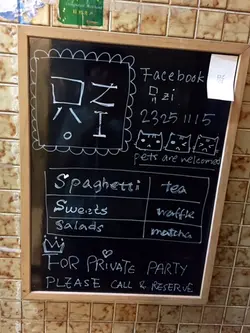 只
ZI
Facebook
只 zi
2325 1115
pets are welcomed
Spaghetti tea
Sweets waffle
Salads matcha
FOR PRIVATE PARTY
PLEASE CALL & RESERVE